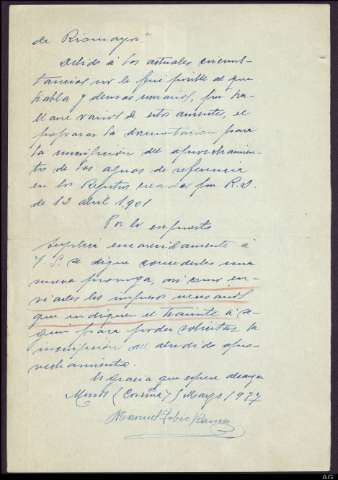 de Riomayor"
Debido á los actuales circuns-
tancias no le fué posible al que
habla y demas usuarios, por ha-
llarse varios de estos ausentes, el
preparar la documentacion para
la inscripción del aprovechamien-
to de las aguas de referencia
en los Registros creados por R.D.
de 12 abril 1901
Por lo expuesto
Suplica encarecidamente á
V.S. se digne concederles una
nueva prorroga, asi como en-
viarles los impresos necesarios
que indiquen el tramite á se-
guir para poder solicitar la
inscripción del derecho de apro-
vechamiento.
Es gracia que espera alcanzar
(Coruña) Mayo 1937
Manuel